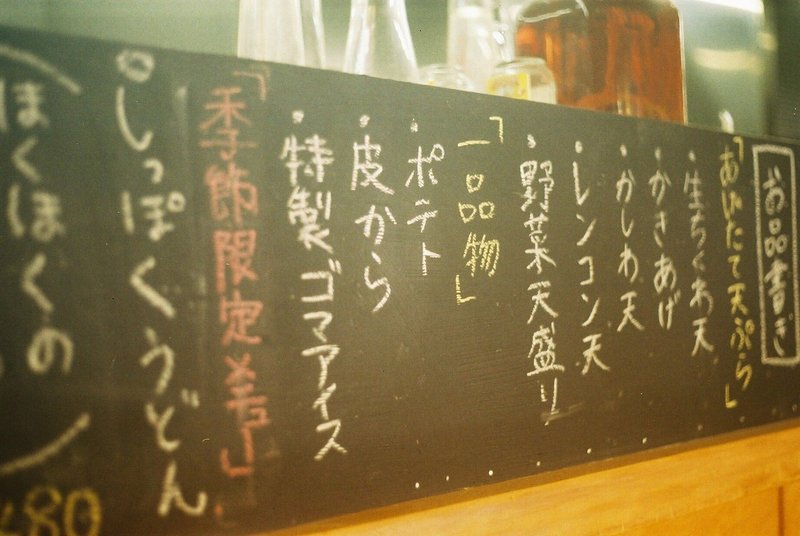 お品書き
「あげたて天ぷら」
・生ちくわ天
・かきあげ
・かしわ天
・レンコン天
・野菜天盛り
「一品物」
・ポテト
・皮から
・特製ゴマアイス
「季節限定
しっぽくうどん
ほくほくの
480